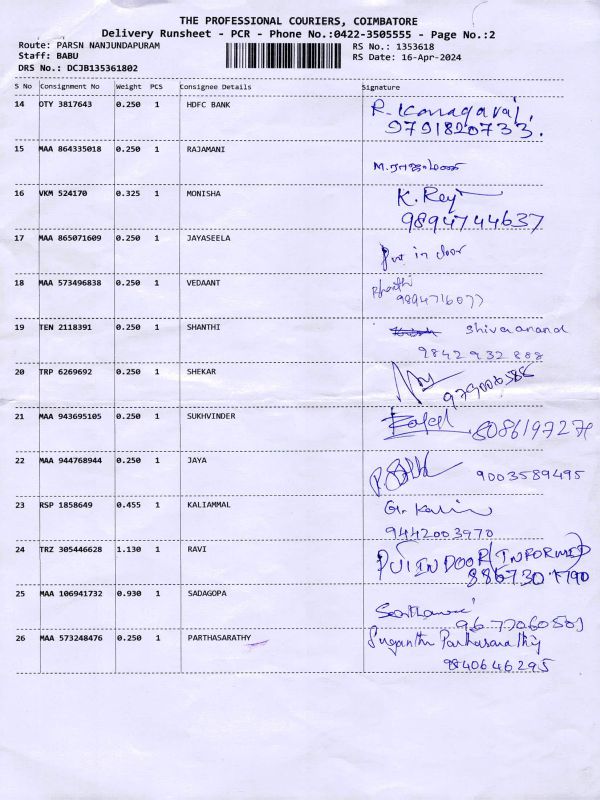 THE PROFESSIONAL COURIERS, COIMBATORE
Delivery Runsheet - PCR - Phone No.:0422-3505555 - Page No.:2
Route: PARSN NANJUNDAPURAM RS No.: 1353618
Staff: BABU RS Date: 16-Apr-2024
DRS No.: DCJB135361802
S No Consignment No Weight PCS Consignee Details Signature
14 OTY 3817643 0.250 1 HDFC BANK R. Kanagaraj,
9791820733.
15 MAA 864335018 0.250 1 RAJAMANI
16 VKM 524170 0.325 1 MONISHA K. Rey
9894744637
17 MAA 865071609 0.250 1 JAYASEELA
Put in door
18 MAA 573496838 0.250 1 VEDAANT
9894716077
19 TEN 2118391 0.250 1 SHANTHI Shivaanand
9842932888
20 TRP 6269692 0.250 1 SHEKAR
21 MAA 943695105 0.250 1 SUKHVINDER
22 MAA 944768944 0.250 1 JAYA
9003589495
23 RSP 1858649 0.455 1 KALIAMMAL
9442003970
24 TRZ 305446628 1.130 1 RAVI PUT IN DOOR (INFORMED)
25 MAA 106941732 0.930 1 SADAGOPA
26 MAA 573248476 0.250 1 PARTHASARATHY Suganthi Parthasarathy
9840646295